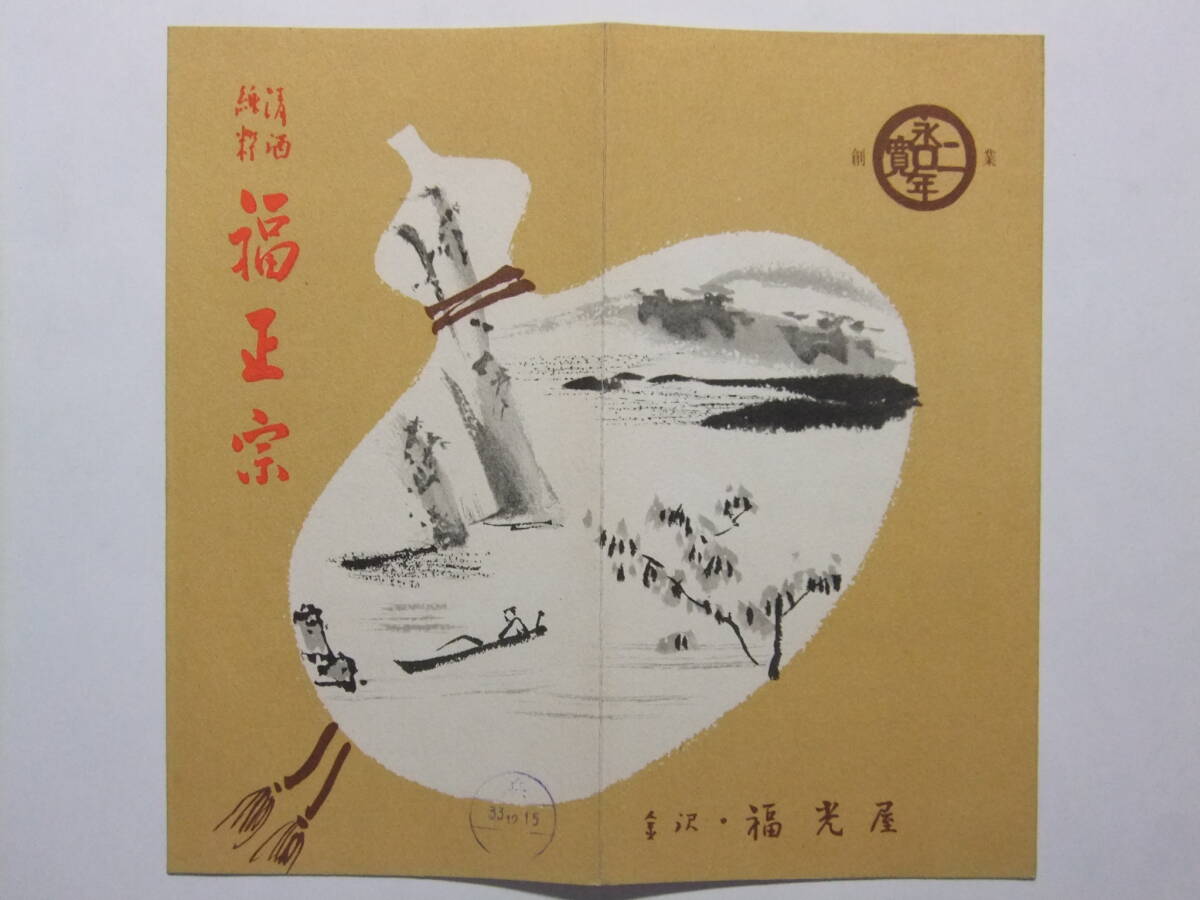 清酒
純粋
福正宗
創 永寶二年 業
金沢・福光屋
33 10 15